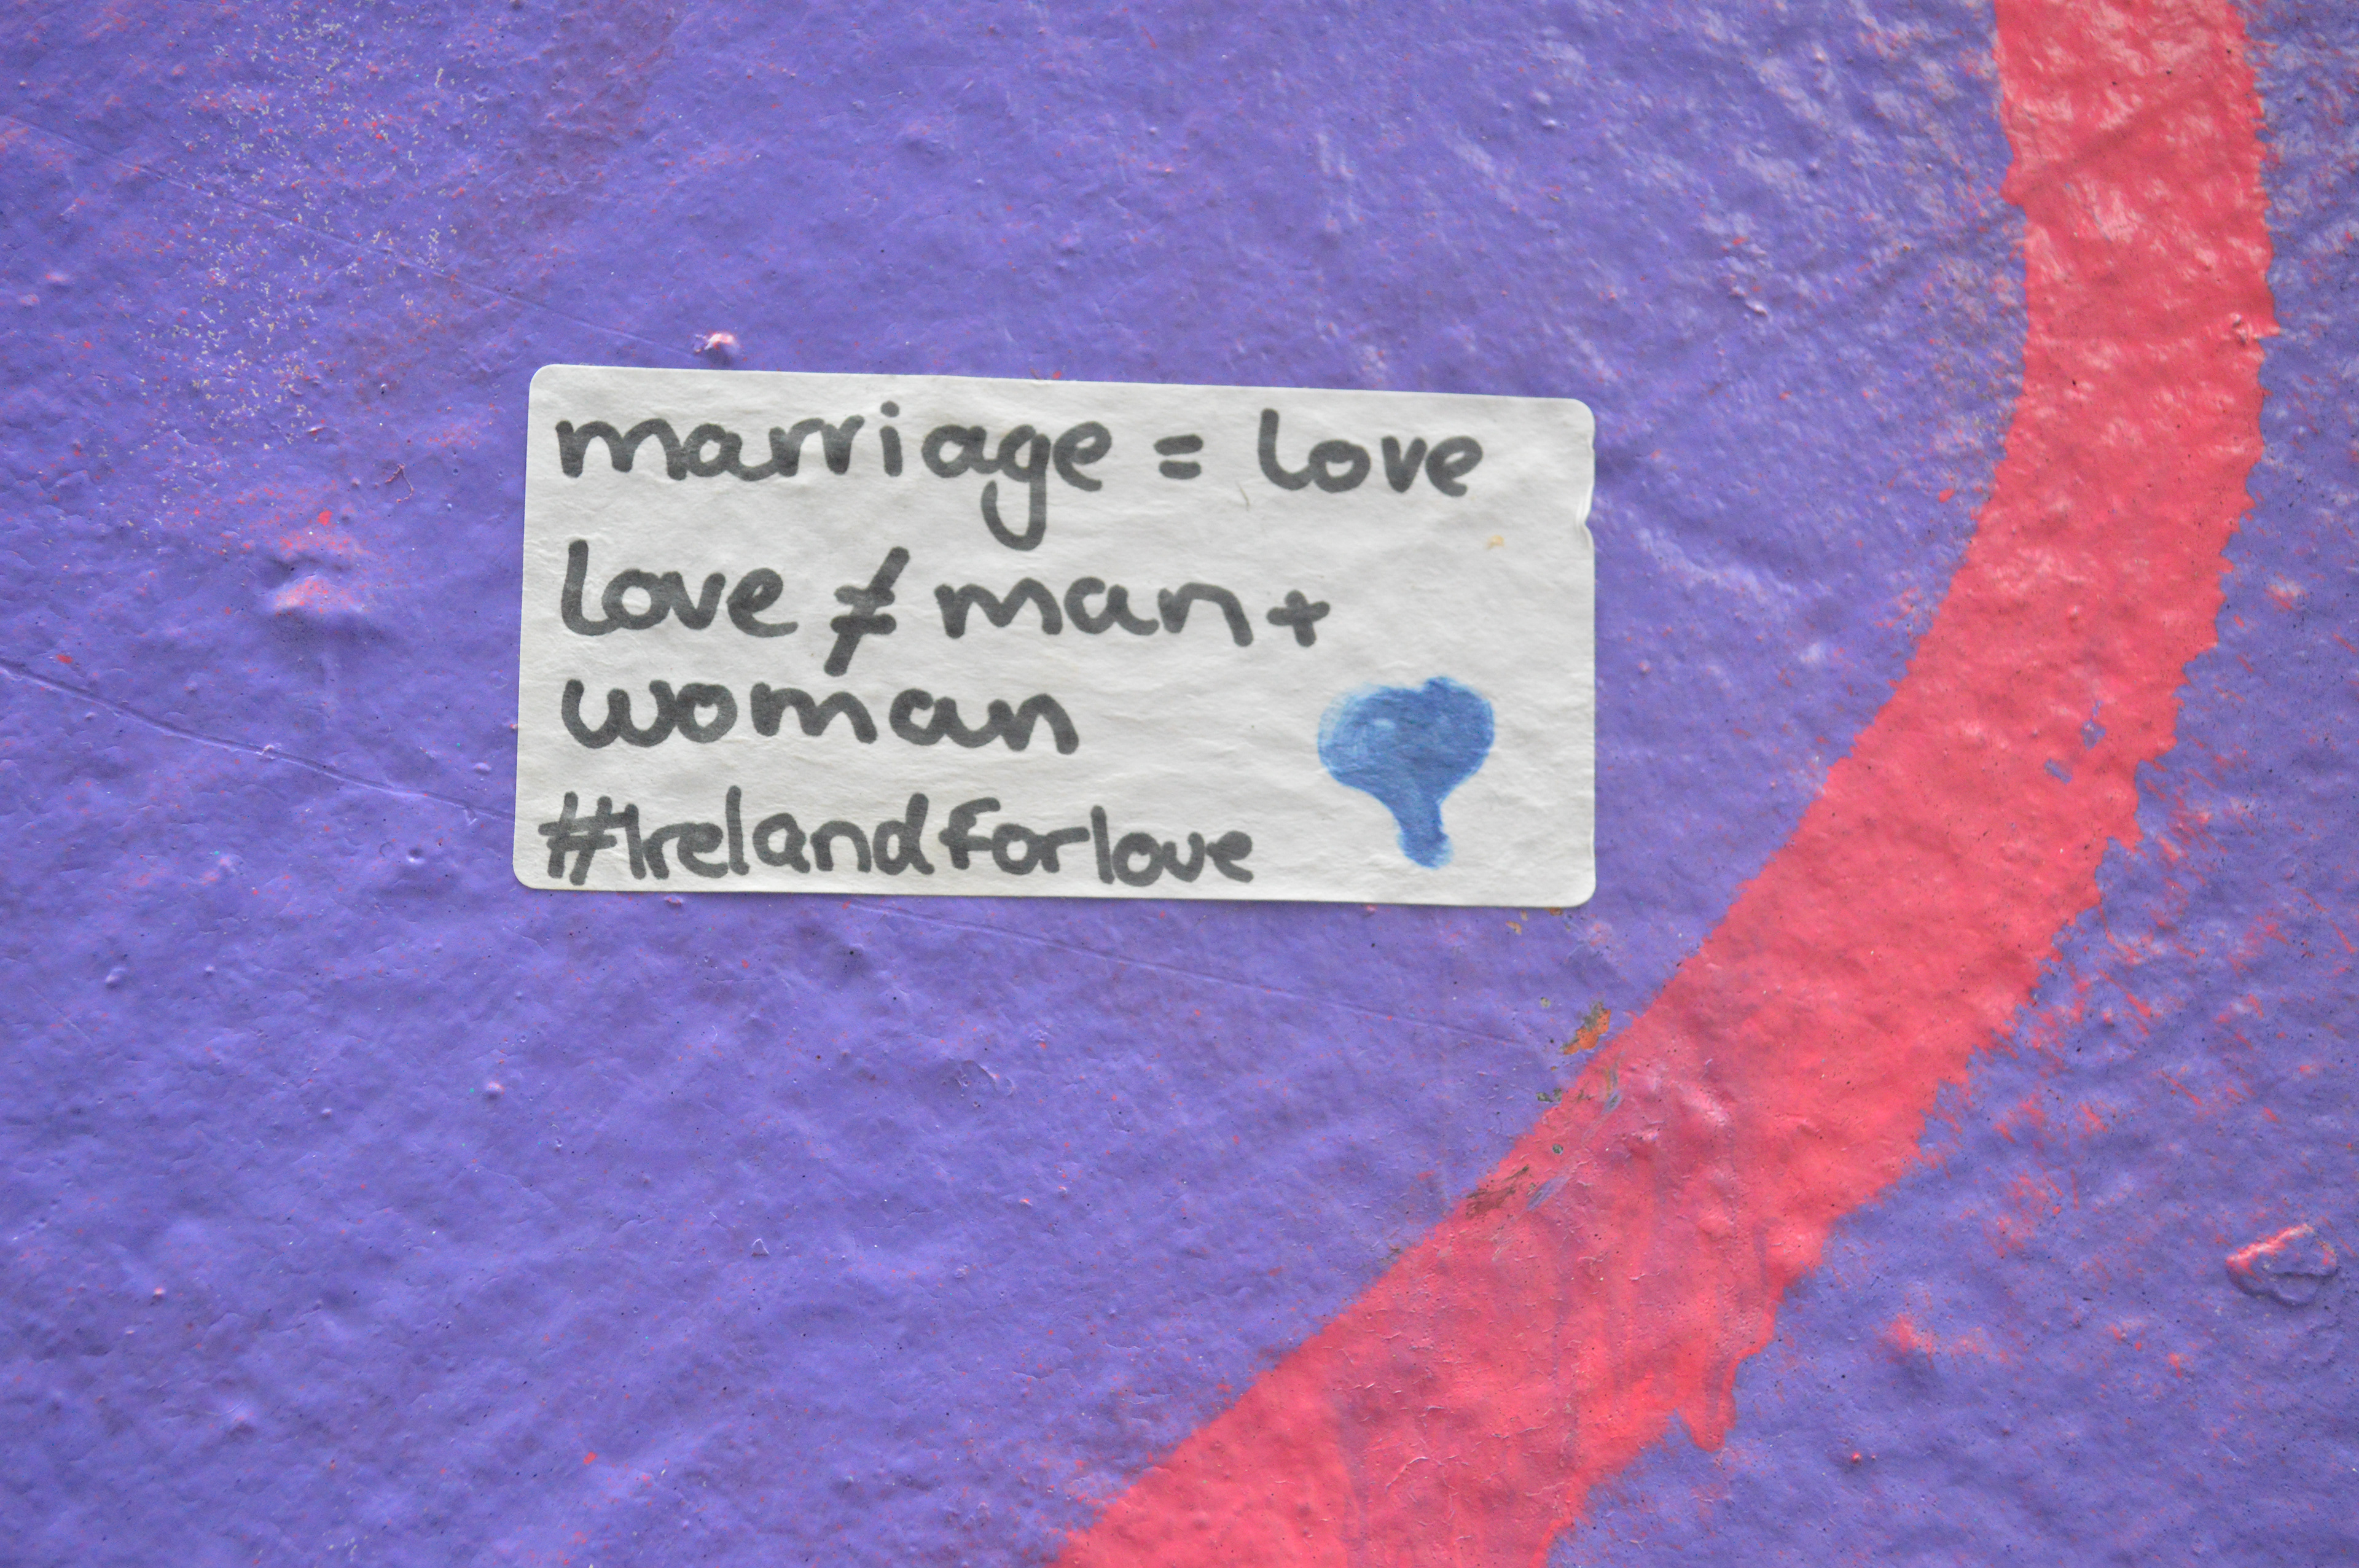 marriage = love
love ≠ man +
woman
#Irelandforlove